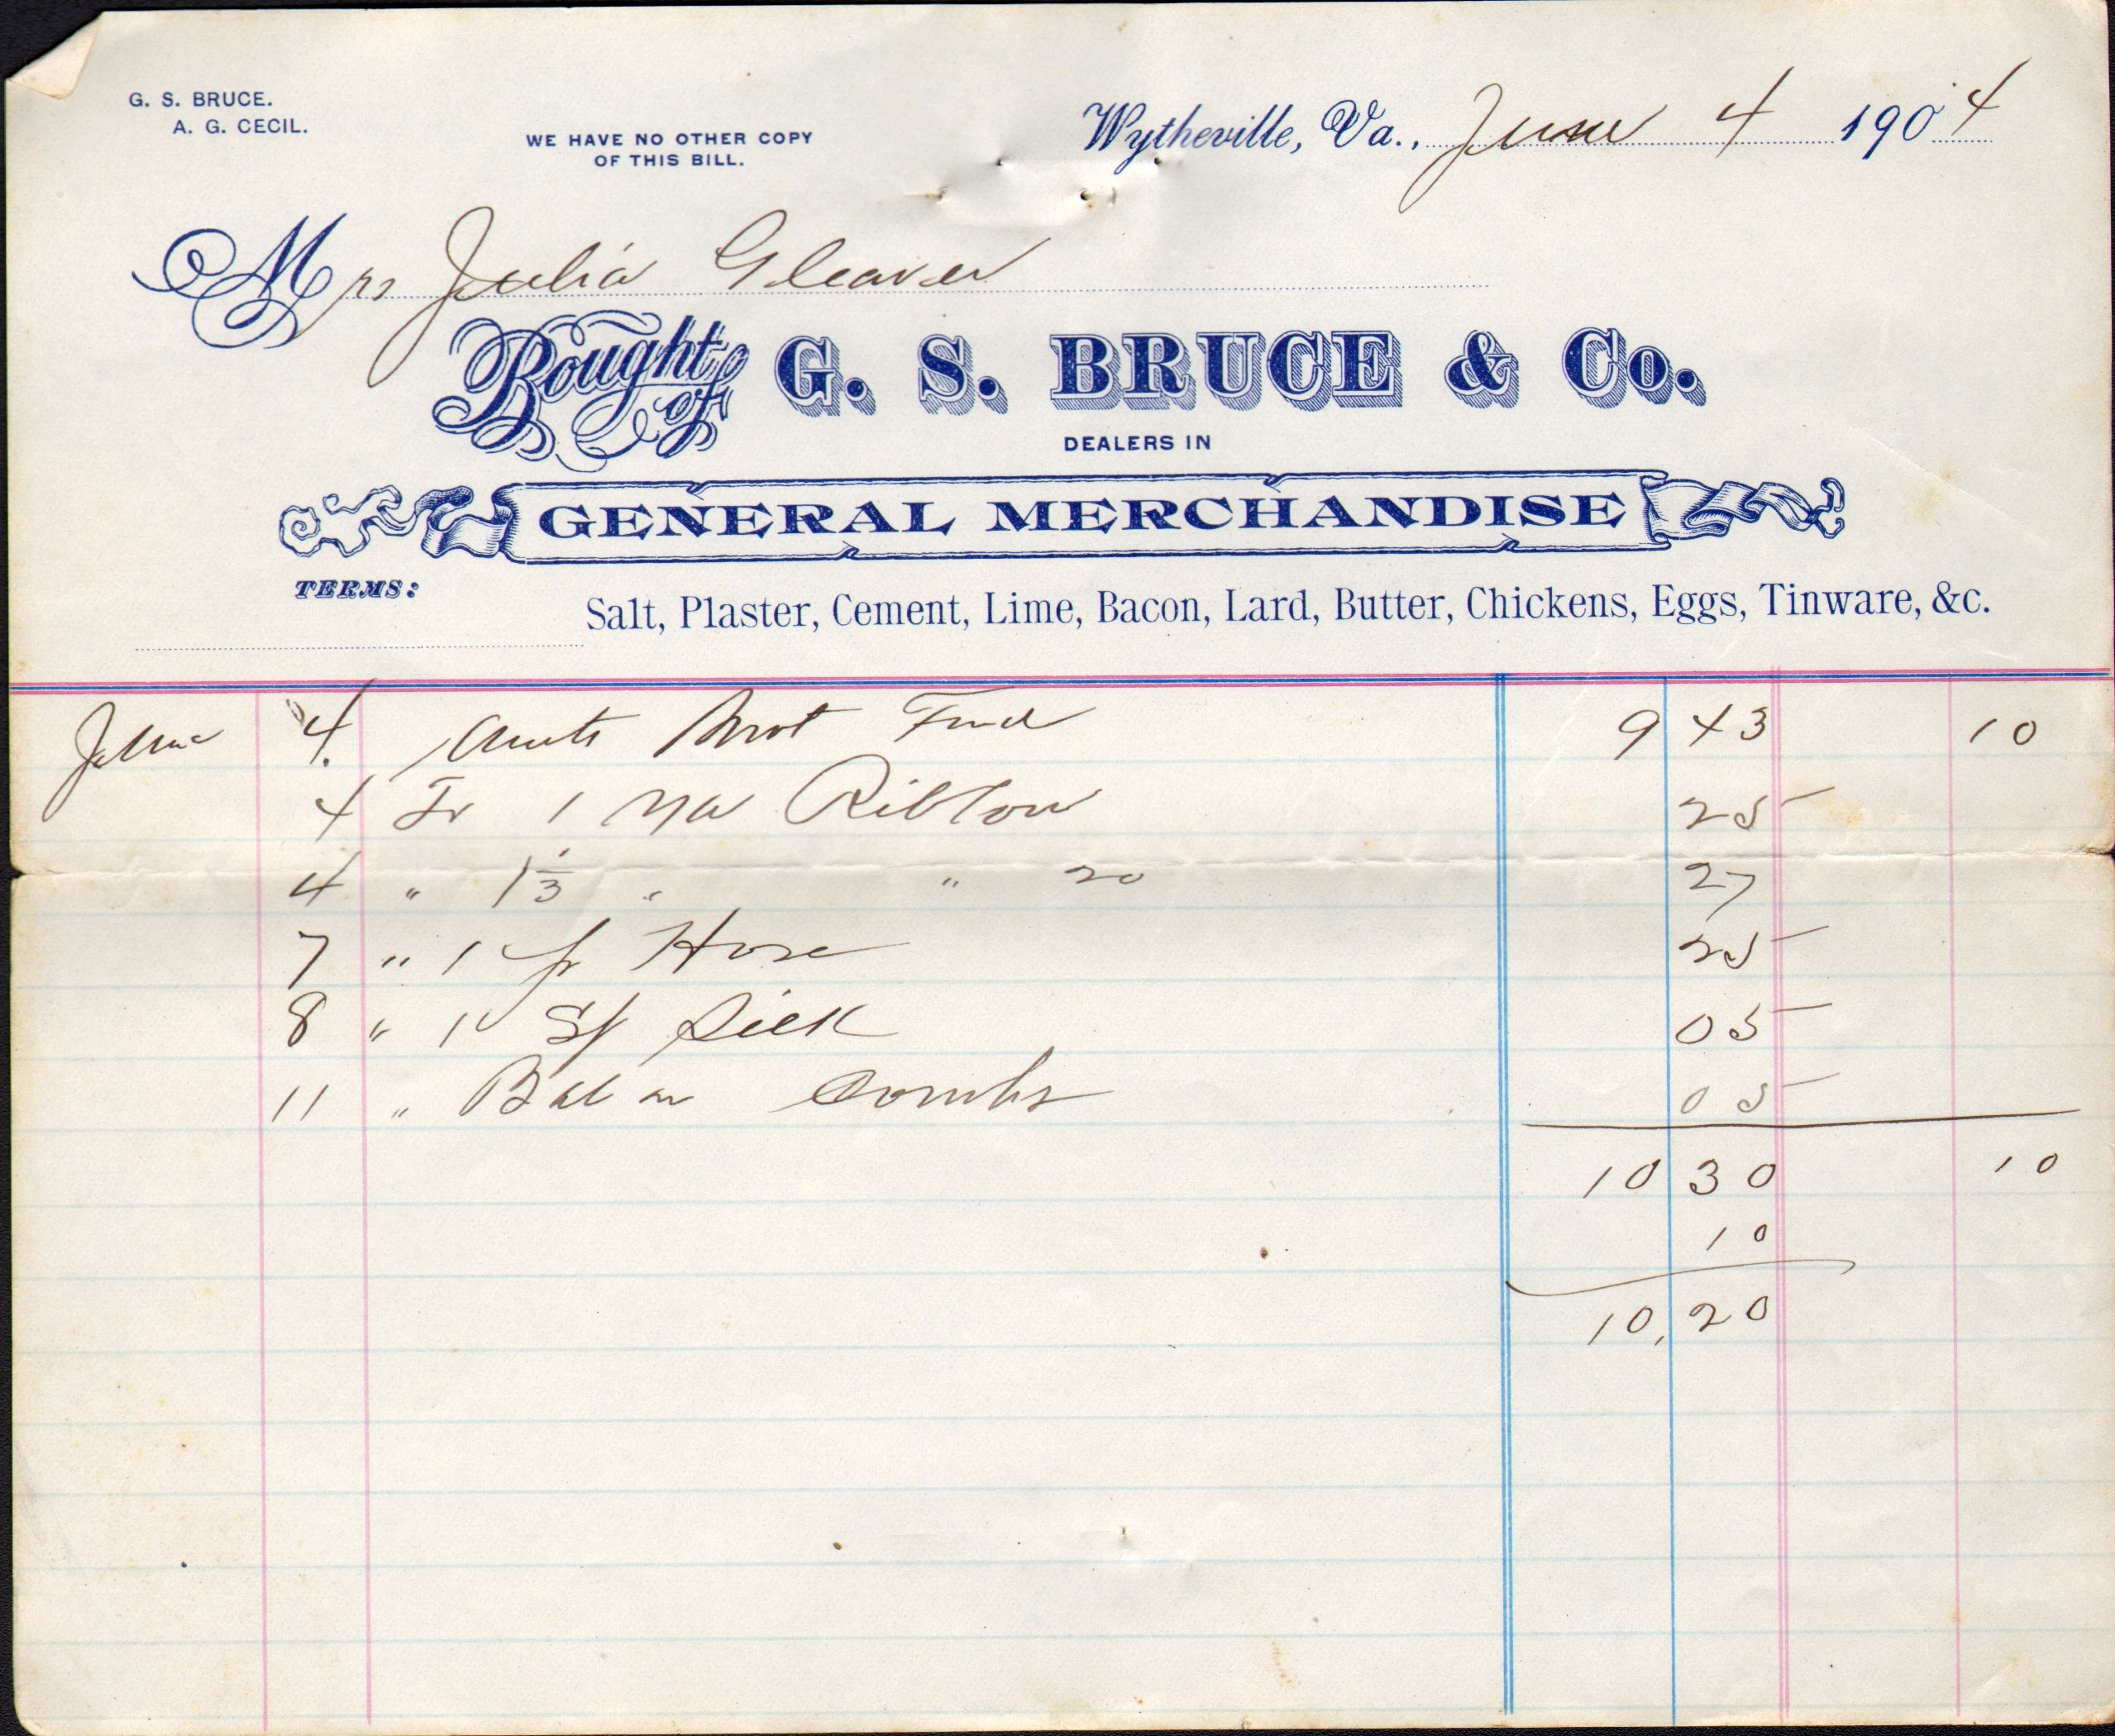 G. S. BRUCE.
A. G. CECIL.
WE HAVE NO OTHER COPY
OF THIS BILL.
Wytheville, Va., June 4 1904
Mrs Julia Gleaves
Bought of G. S. BRUCE & Co.
DEALERS IN
GENERAL MERCHANDISE
TERMS:
Salt, Plaster, Cement, Lime, Bacon, Lard, Butter, Chickens, Eggs, Tinware, &c.
June 4. 9 43 10
4 To 1 Yd Ribbon 25
4 " 1 1/3 " " 20 27
7 " 1 pr Hose 25
8 " 1 Sp Silk 05
11 " Combs 05
10 30 10
10
10,20